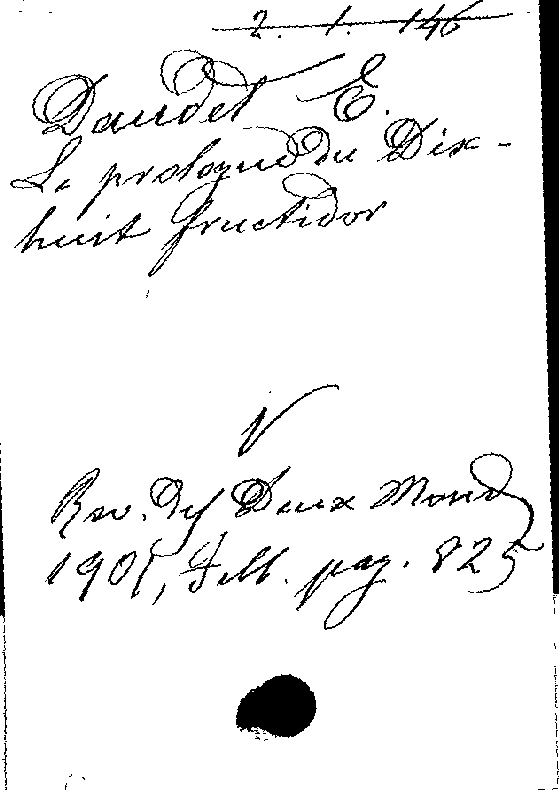 2. 1. 146
Daudet E.
Le prologue du Dix-
huit fructidor
V
Rev. des Deux Mond
1901, Febb. pag. 825